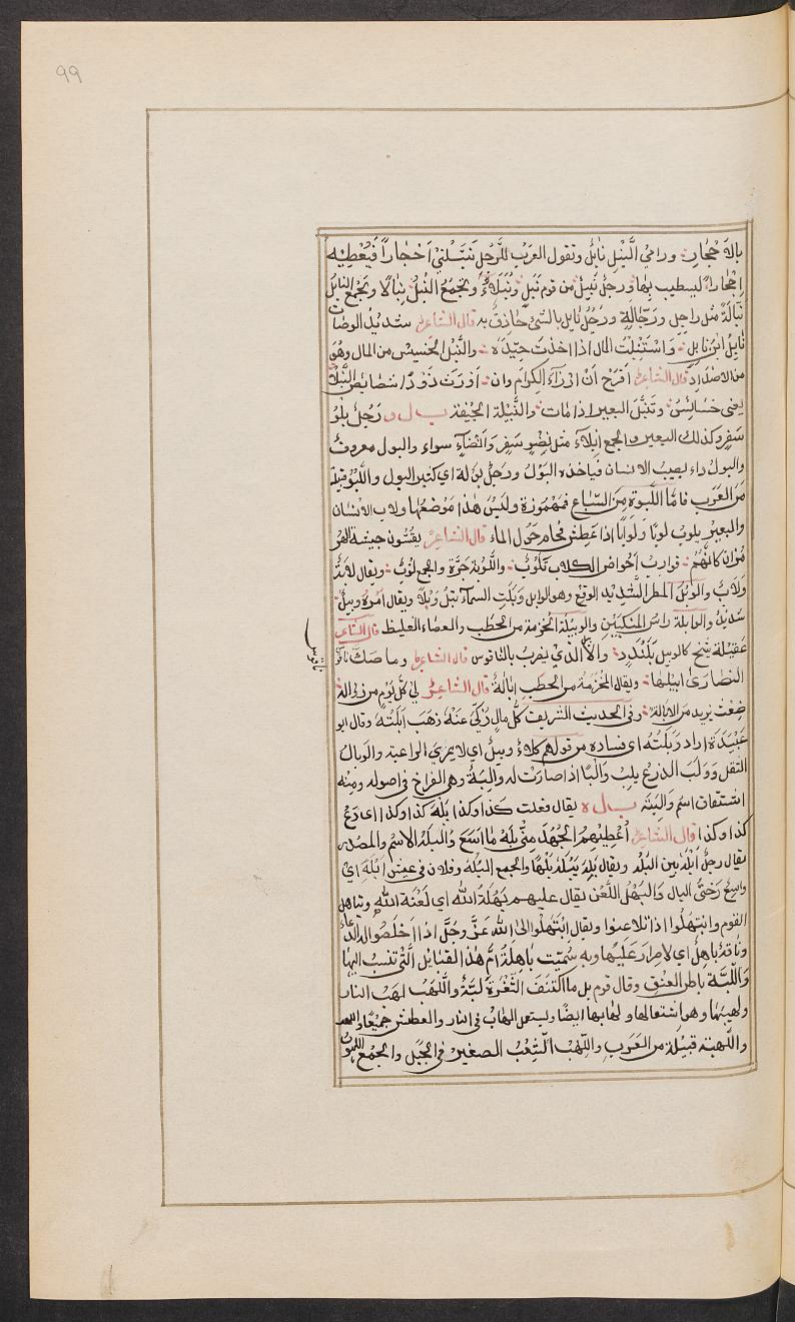 ٩٩
بالاحجار ورامى النَّبْل نابل وتقول العرب للرّجل نَبِّلْنى احجاراً فيُعْطِيه
احجاراً ليستطيب بها ورجل نبيل من قوم نَبَل ونُبَلاء وتجمع النَّبْل نبالاً وتجمع النابل
نبّالة مثل راجل ورجّالة ورجل نابل بالشئ حاذق به قال الشاعر شديد الوصاة
نابل ابن نابل واستنبلت المال اذا اخذت جيّده والنبل الخسيس من المال وهو
من الاضداد قال الشاعر افرح ان ارزأ الكرام وان اورث ذوداً شصائص النبلا
يعنى خسائس وتنبّل البعير اذا مات والنبيلة الجيفة ب ل و رجل بلو
سفر وكذلك البعير والجمع ابلاء مثل نضو سفر وانضاء سواء والبول معروف
والبوال داء يصيب الانسان فياخذه البول ورجل بولة اى كثير البول واللبو قبيلة
من العرب فامّا اللبوة من السباع فمهموزة وليس هذا موضعها ولاب الانسان
والبعير يلوب لوبا ولوابا اذا عطش فحام حول الماء قال الشاعر يقشون جيشة
كانّهم قوارب احواض الكلاب تلوب واللوبة حرّة والجمع لوب ويقال لابة
ولاب والوبل المطر الشديد الوقع وهو الوابل وبلت السماء تبل وبلا ويقال امر وبيل
شديد والوابلة راس المنكبين والوبيلة الحزمة من الحطب والعصا الغليظ قال الشاعر
عقيلة شيخ كالوبيل يلندد والا الذى يضرب بالناقوس قال الشاعر وما صكّ ناقو
ناقوس
النصارى ابيلها ويقال للحزمة من الحطب ابّالة قال الشاعر لى كل يوم من ذؤاله
ضغث يزيد من الابالة وفى الحديث الشريف كل مال زكّى عنه ذهب ابلته وقال ابو
عبيدة اراد وبلته اى فساده من قولهم كلاء وبيل اى لا يمرئ الراعية والوبال
الثقل وولب الزرع يلب والبا اذا صارت له والبة وهى الفراخ فى اصوله ومنه
اشتقاق اسم والبة ب ل ه يقال فعلت كذا وكذا بله كذا وكذا اى دع
كذا وكذا قال الشاعر اعطيهم الجهد منّى بله ما اسع والبله الاسم والمصدر
يقال رجل ابله بين البله ويقال بله يبله بلها والجمع البله وفلان فى عيش ابله اى
واسع رخى البال والبهل اللعن يقال عليهم بهلة الله اى لعنة الله وتباهل
القوم وابتهلوا اذا تلاعنوا ويقال ابتهلوا الى الله عزّ وجلّ اذا اخلصوا له الدعاء
وناقة باهل اى لا صرار عليها وبه سميت باهلة ام هذا القبائل التى تنسب اليها
واللبة باطن العنق وقال قوم بل ما اكتنف الثغرة لبة واللهب لهب النار
ولهيبها وهو اشتعالها ولهابها ايضا ويستعمل اللهاب فى النار والعطش جميعا
واللهبة قبيلة من العرب واللهب الشعب الصغير فى الجبل والجمع اللهوب